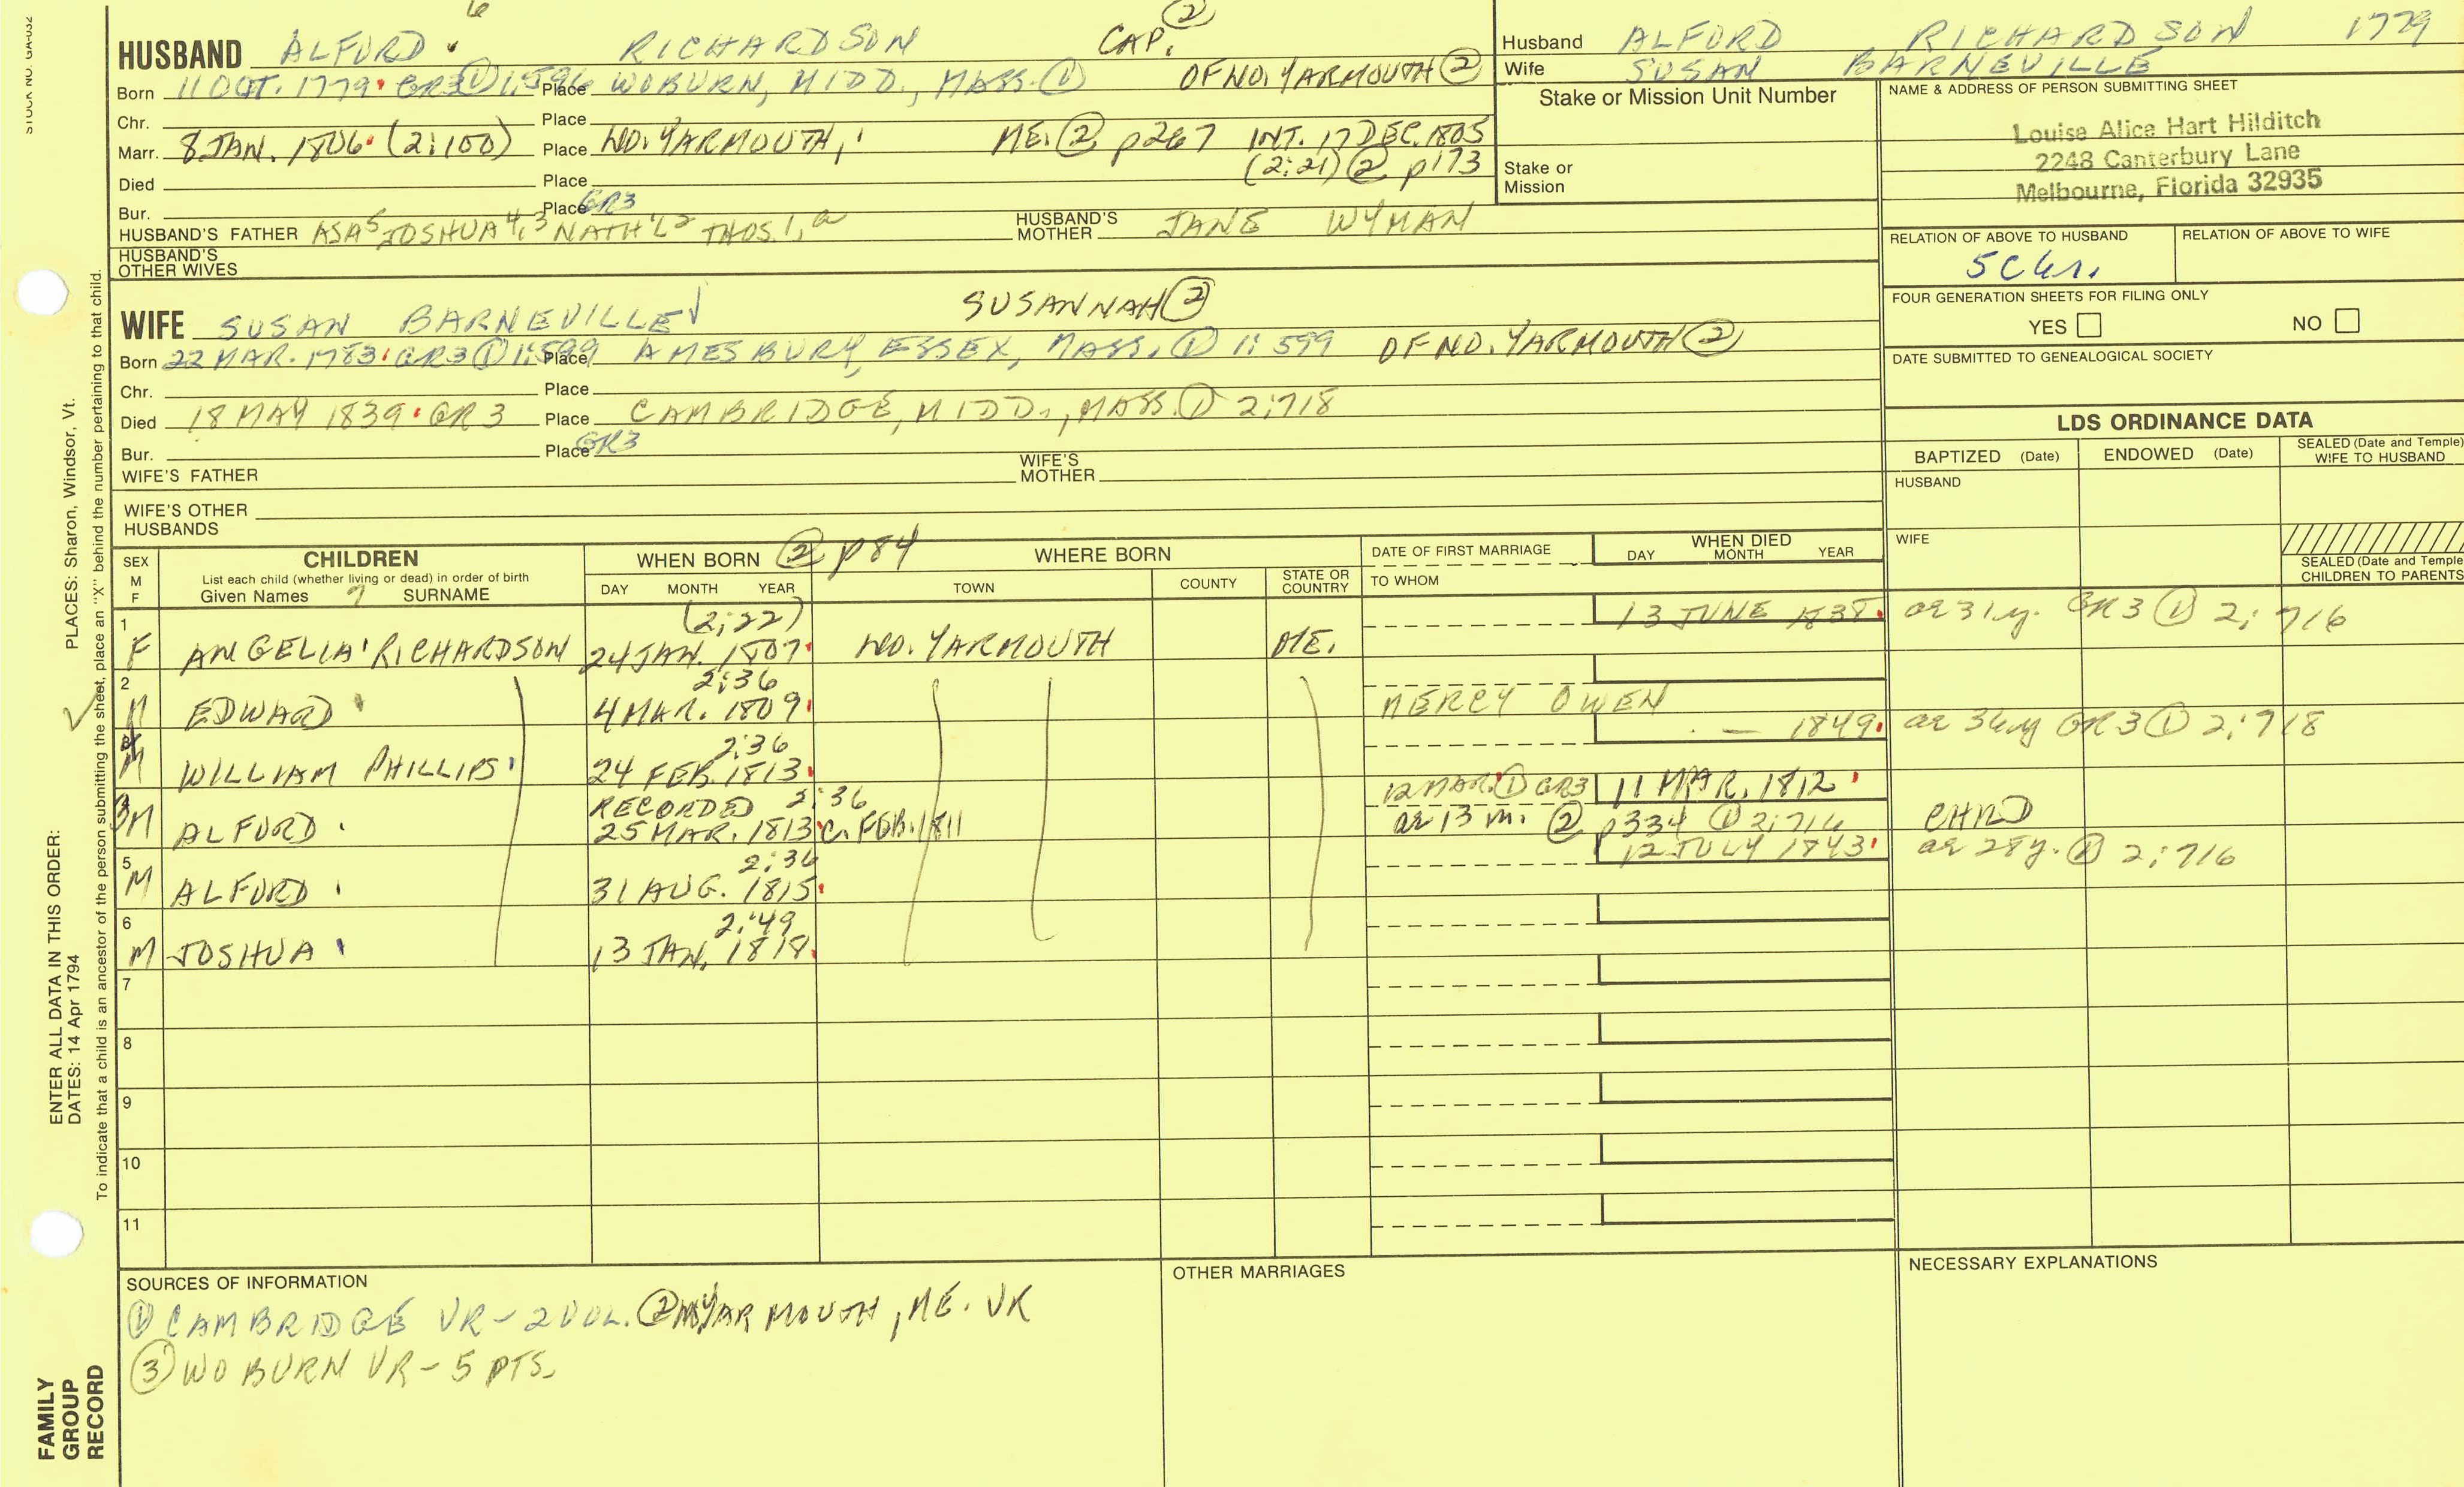 STOCK NO. GA-032
6
HUSBAND ALFORD RICHARDSON CAP. ②
Born 11 OCT. 1779 GR3 ① 1:596 Place WOBURN, MIDD., MASS. ① OF NO. YARMOUTH ②
Chr. Place
Marr. 8 JAN. 1806 (2:100) Place NO. YARMOUTH, ME. ② p267 INT. 17 DEC. 1805
(2:21) ② p173
Died Place
Bur. Place GR3
HUSBAND'S FATHER ASA5 JOSHUA4,3 NATH'L2 THOS.1, a HUSBAND'S MOTHER JANE WYMAN
HUSBAND'S OTHER WIVES
WIFE SUSAN BARNEVILLE SUSANNAH ②
Born 22 MAR. 1783 GR3 ① 1:599 Place AMESBURY, ESSEX, MASS. ① 1:599 OF NO. YARMOUTH ②
Chr. Place
Died 18 MAY 1839 GR3 Place CAMBRIDGE, MIDD., MASS. ① 2:718
Bur. Place GR3
WIFE'S FATHER WIFE'S MOTHER
WIFE'S OTHER HUSBANDS
Husband ALFORD RICHARDSON 1779
Wife SUSAN BARNEVILLE
Stake or Mission Unit Number
Stake or Mission
NAME & ADDRESS OF PERSON SUBMITTING SHEET
Louise Alice Hart Hilditch
2248 Canterbury Lane
Melbourne, Florida 32935
RELATION OF ABOVE TO HUSBAND RELATION OF ABOVE TO WIFE
5C
FOUR GENERATION SHEETS FOR FILING ONLY
YES NO
DATE SUBMITTED TO GENEALOGICAL SOCIETY
LDS ORDINANCE DATA
BAPTIZED (Date) ENDOWED (Date) SEALED (Date and Temple) WIFE TO HUSBAND
HUSBAND
WIFE
SEALED (Date and Temple
CHILDREN TO PARENTS
SEX M F
CHILDREN
List each child (whether living or dead) in order of birth
Given Names SURNAME
WHEN BORN ② p84
DAY MONTH YEAR
WHERE BORN
TOWN COUNTY STATE OR COUNTRY
DATE OF FIRST MARRIAGE
TO WHOM
WHEN DIED
DAY MONTH YEAR
1 (2:22) 13 JUNE 1838 ae 31y. GR3 ① 2:716
F ANGELIA RICHARDSON 24 JAN. 1807 NO. YARMOUTH ME.
2 2:36
M EDWARD 4 MAR. 1809 MERCY OWEN
2:36 — 1849 ae 36y GR3 ① 2:718
M WILLIAM PHILLIPS 24 FEB. 1813
RECORDED 2:36 12 MAR. ① GR3 11 MAR. 1812
3 M ALFORD 25 MAR. 1813 C. FEB. 1811 ae 13 m. ② p334 ① 2:716 CHILD
5 2:36 12 JULY 1843 ae 28y. ① 2:716
M ALFORD 31 AUG. 1815
6 2:49
M JOSHUA 13 JAN. 1818
7
8
9
10
11
SOURCES OF INFORMATION
① CAMBRIDGE VR - 2 VOL. ② YARMOUTH, ME. VR
③ WOBURN VR - 5 PTS.
OTHER MARRIAGES
NECESSARY EXPLANATIONS
PLACES: Sharon, Windsor, Vt.
To indicate that a child is an ancestor of the person submitting the sheet, place an "X" behind the number pertaining to that child.
ENTER ALL DATA IN THIS ORDER:
DATES: 14 Apr 1794
FAMILY
GROUP
RECORD